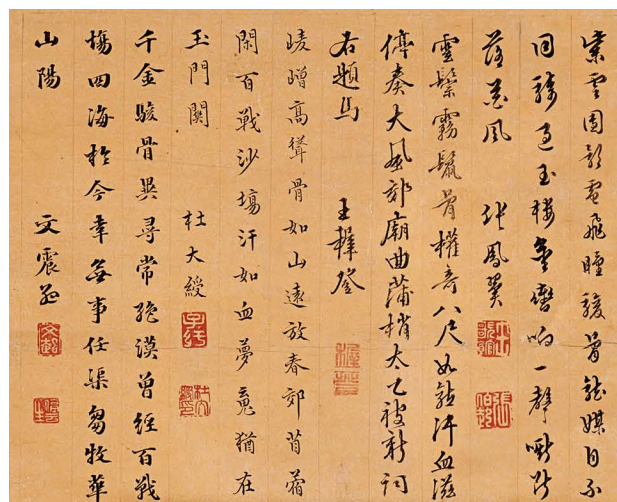 紫雲團影電飛瞳駿骨龍媒自不
同騎過玉樓金轡响一聲嘶斷
落花風 張鳳翼
雲鬃霧鬣骨權奇八尺如龍汗血滋
停奏大風郊廟曲蒲梢太乙被新詞
右題馬 王穉登
崚嶒高聳骨如山遠放春郊苜蓿
閑百戰沙塲汗如血夢䰟猶在
玉門關 杜大綬
千金駿骨異尋常絕漠曾經百戰
塲四海於今幸無事任渠芻牧華
山陽 文震孟